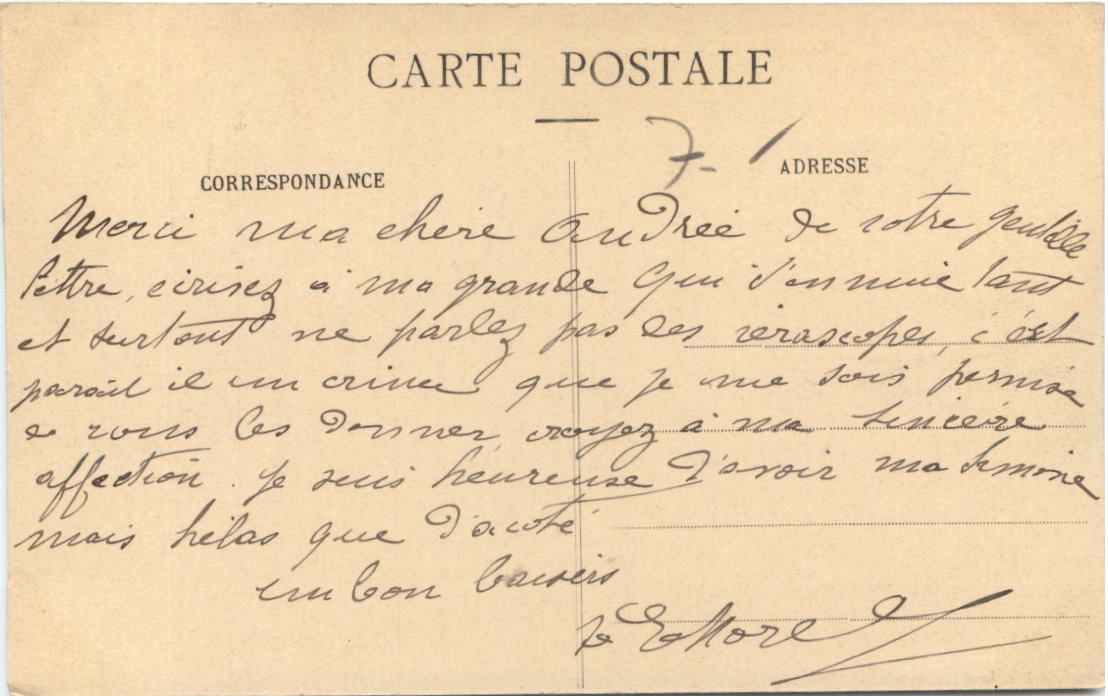 CARTE POSTALE
7-
CORRESPONDANCE
ADRESSE
Merci ma chère Andrée de votre gentille
lettre, écrisez à ma grande qui s'ennuie tant
et surtout ne parlez pas des vérascopes, c'est
parait il un crime que je me sois permise
de vous les donner, croyez à ma sincère
affection. Je suis heureuse d'avoir ma Simone
mais hélas que d'acoté
un bon baisers